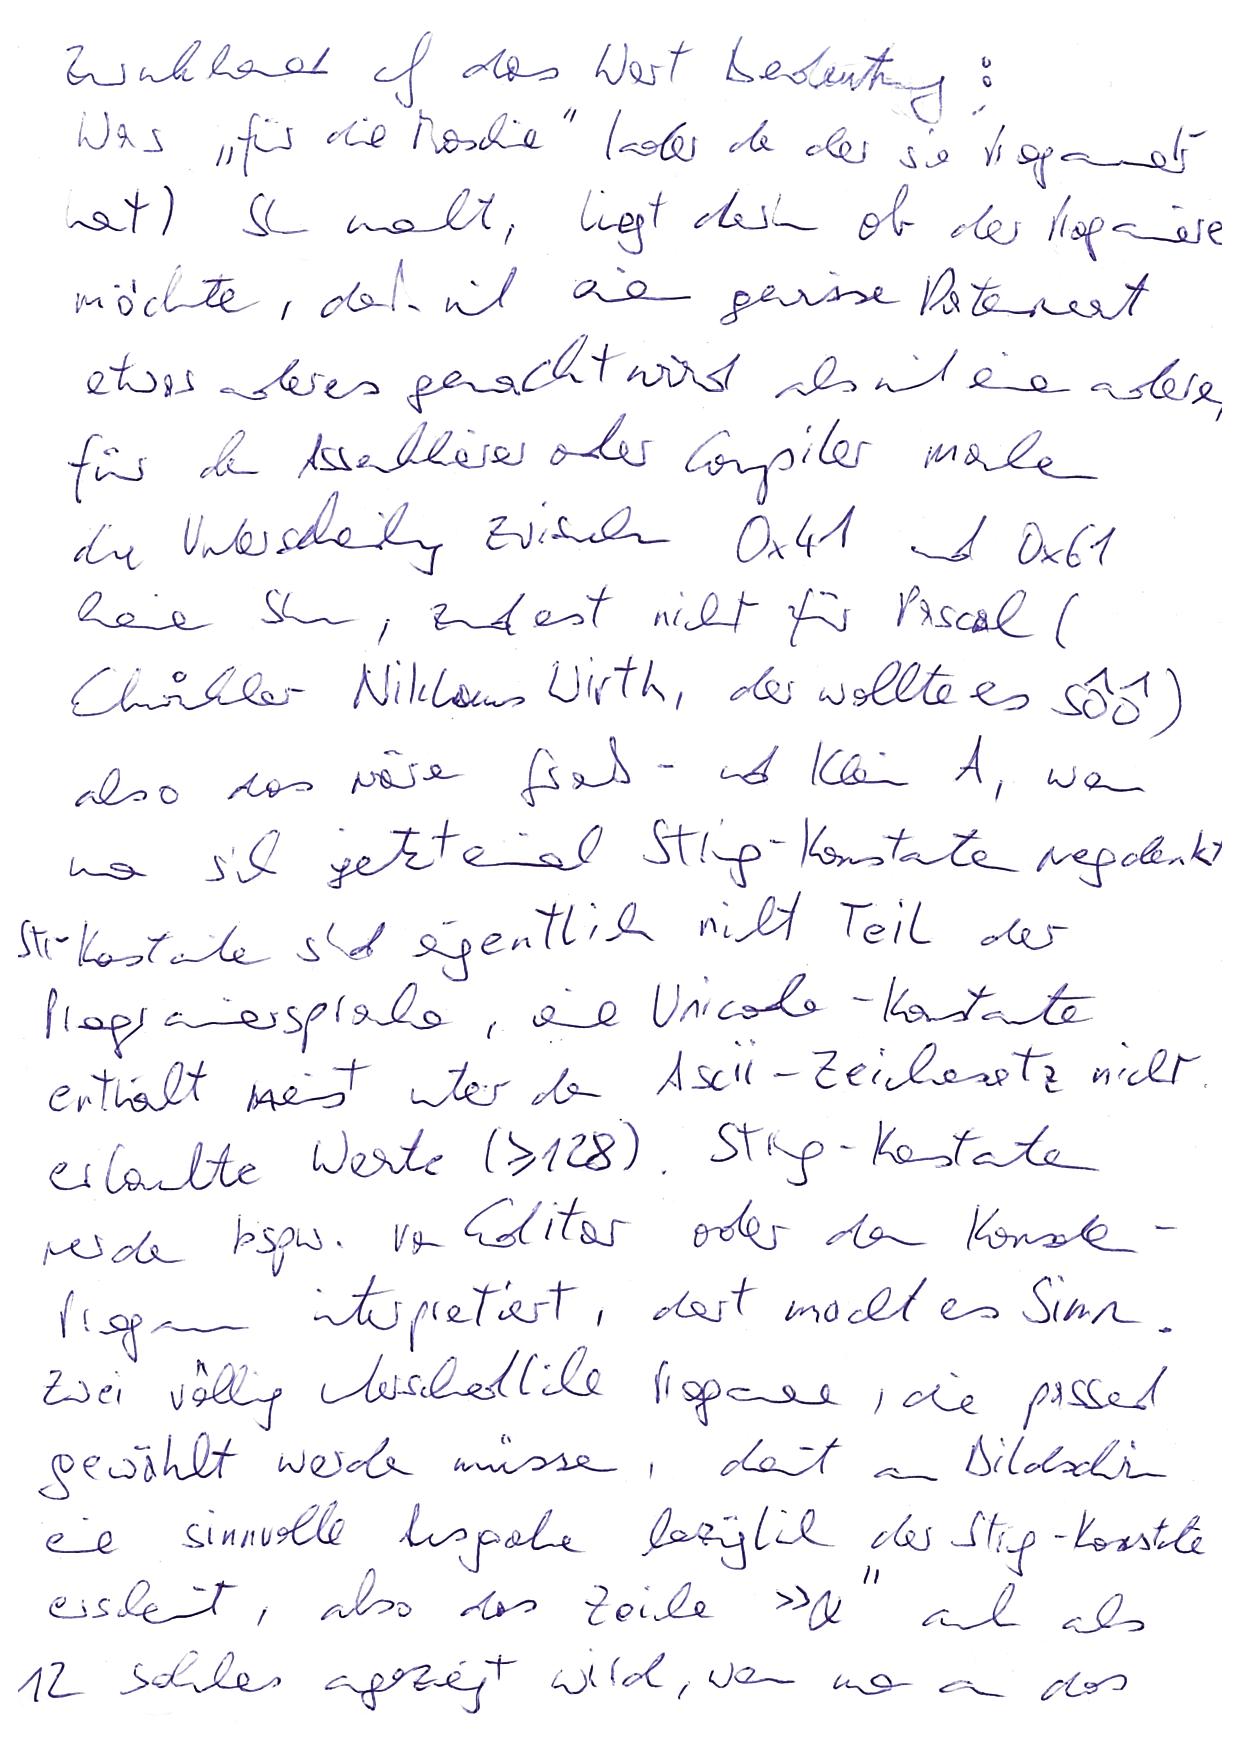 Zurückkommend auf das Wort Bedeutung:
Was „für die Maschine" (oder den der sie programmiert
hat) Sinn macht, liegt darin ob der Programmierer
möchte, daß mit einem gewissen Datenwert
etwas anderes gemacht wird als mit einem anderen,
für den Assemblierer oder Compiler machen
die Unterscheidung zwischen 0x41 und 0x61
keinen Sinn, zumindest nicht für Pascal (
Entwickler Niklaus Wirth, der wollte es so)
also das wäre Groß- und Klein A, wenn
man sich jetzt einmal String-Konstanten wegdenkt
String-Konstanten sind eigentlich nicht Teil der
Programmiersprache, eine Unicode-Konstante
enthält meist unter dem Ascii-Zeichensatz nicht
erlaubte Werte (≥128). String-Konstanten
werden bspw. vom Editor oder dem Konsole-
Programm interpretiert, dort macht es Sinn.
Zwei völlig unterschiedliche Programme, die passend
gewählt werden müssen, damit am Bildschirm
eine sinnvolle Ausgabe bezüglich der String-Konstante
erscheint, also das Zeichen auch als
solches angezeigt wird, wenn man an das